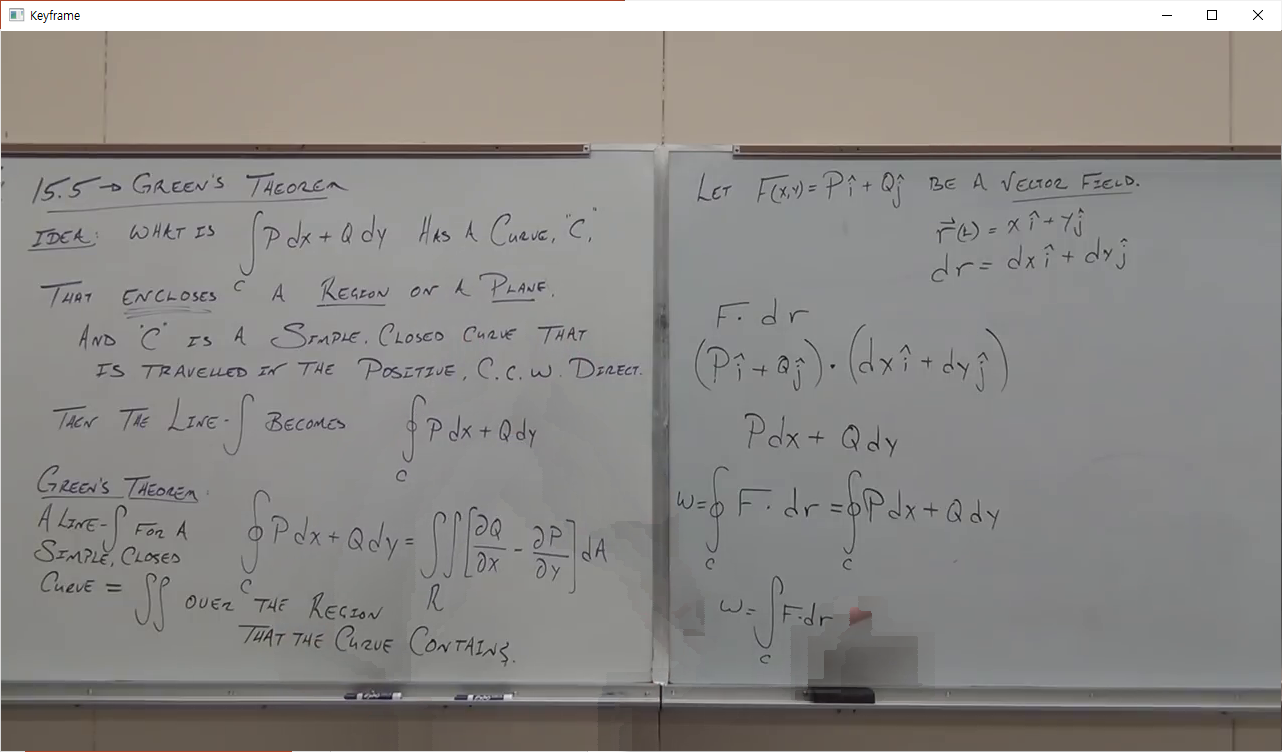 Keyframe
15.5 → GREEN'S THEOREM
IDEA: WHAT IS ∫_C P dx + Q dy HAS A CURVE, "C",
THAT ENCLOSES A REGION ON A PLANE.
AND "C" IS A SIMPLE, CLOSED CURVE THAT
IS TRAVELLED IN THE POSITIVE, C.C.W. DIRECT.
THEN THE LINE-∫ BECOMES ∮_C P dx + Q dy
GREEN'S THEOREM:
A LINE-∫ FOR A
SIMPLE, CLOSED
CURVE = ∬ OVER THE REGION
THAT THE CURVE CONTAINS.
∮_C P dx + Q dy = ∬_R [∂Q/∂x - ∂P/∂y] dA
LET F(x,y) = P î + Q ĵ BE A VECTOR FIELD.
r⃗(t) = x î + y ĵ
dr = dx î + dy ĵ
F · dr
(P î + Q ĵ) · (dx î + dy ĵ)
P dx + Q dy
W = ∮_C F · dr = ∮_C P dx + Q dy
W = ∫_C F · dr